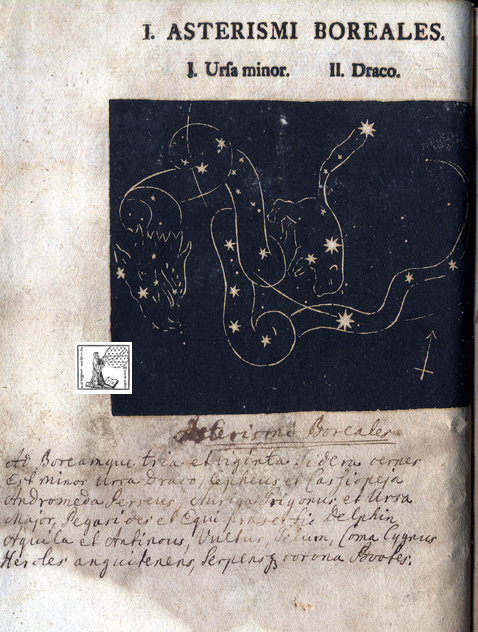 I. ASTERISMI BOREALES.
I. Ursa minor. II. Draco.
Asterismi Boreales
Ad Boreamque tria et viginta Sidera cernes
Est minor Ursa Draco, Cepheus et Cassiopeja
Andromeda Perseus Auriga Trigonus et Ursa
Major, Pegasides et Equi Delphin
Aquila et Antinous, Vultur, Telum, Coma Cygnus
Hercles anguitenens, Serpensq corona Bootes.